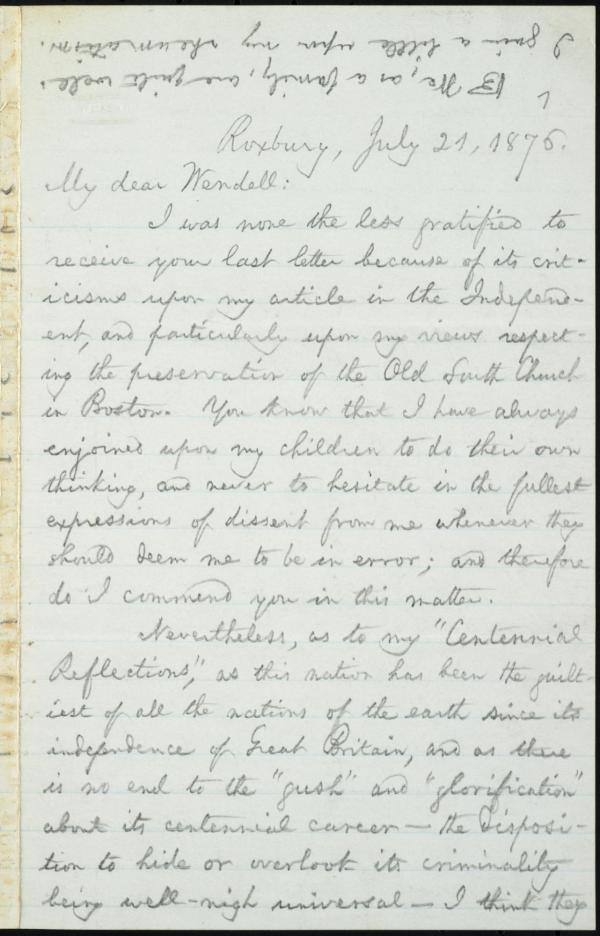 We, as a family, are quite well.
I gain a little upon my rheumatism.
Roxbury, July 21, 1876.
My dear Wendell:
I was none the less gratified to
receive your last letter because of its crit-
icisms upon my article in the Independ-
ent, and particularly upon my views respect-
ing the preservation of the Old South Church
in Boston. You know that I have always
enjoined upon my children to do their own
thinking, and never to hesitate in the fullest
expressions of dissent from me whenever they
should deem me to be in error; and therefore
do I commend you in this matter.
Nevertheless, as to my "Centennial
Reflections," as this nation has been the guilt-
iest of all the nations of the earth since its
independence of Great Britain, and as there
is no end to the "gush" and "glorification"
about its centennial career — the disposi-
tion to hide or overlook its criminality
being well-nigh universal — I think they